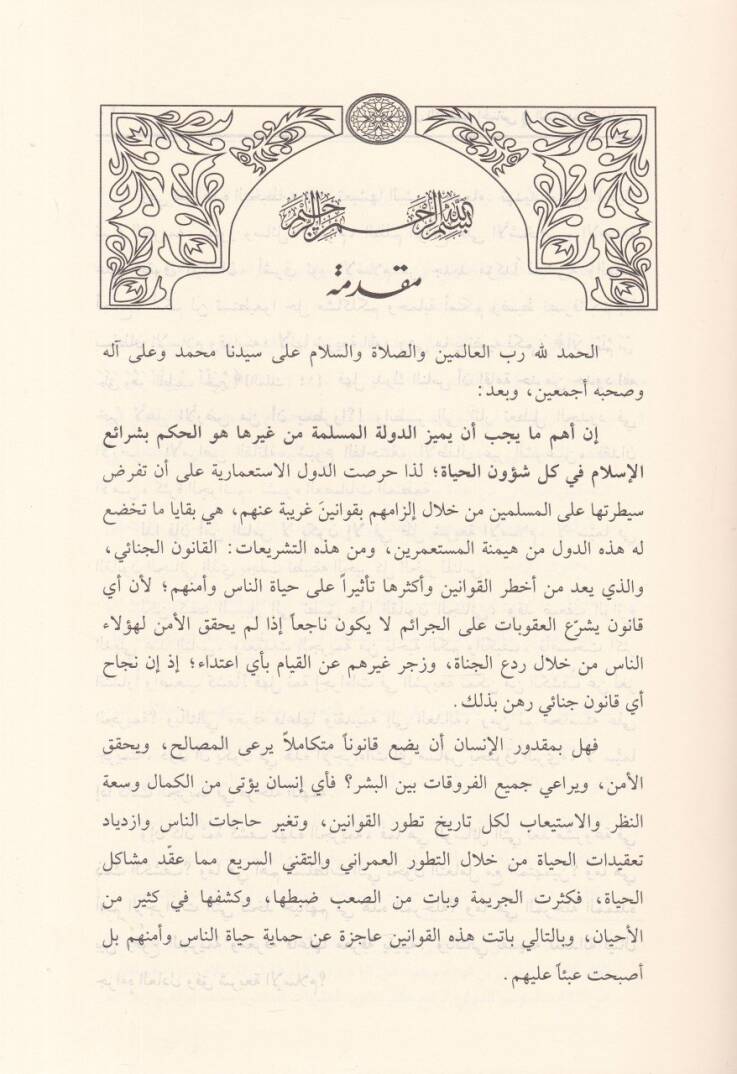 بسم الله الرحمن الرحيم
مقدمة
الحمد لله رب العالمين والصلاة والسلام على سيدنا محمد وعلى آله
وصحبه أجمعين، وبعد:
إن أهم ما يجب أن يميز الدولة المسلمة من غيرها هو الحكم بشرائع
الإسلام في كل شؤون الحياة؛ لذا حرصت الدول الاستعمارية على أن تفرض
سيطرتها على المسلمين من خلال إلزامهم بقوانينَ غريبة عنهم، هي بقايا ما تخضع
له هذه الدول من هيمنة المستعمرين، ومن هذه التشريعات: القانون الجنائي،
والذي يعد من أخطر القوانين وأكثرها تأثيراً على حياة الناس وأمنهم؛ لأن أي
قانون يشرّع العقوبات على الجرائم لا يكون ناجعاً إذا لم يحقق الأمن لهؤلاء
الناس من خلال ردع الجناة، وزجر غيرهم عن القيام بأي اعتداء؛ إذ إن نجاح
أي قانون جنائي رهن بذلك.
فهل بمقدور الإنسان أن يضع قانوناً متكاملاً يرعى المصالح، ويحقق
الأمن، ويراعي جميع الفروقات بين البشر؟ فأي إنسان يؤتى من الكمال وسعة
النظر والاستيعاب لكل تاريخ تطور القوانين، وتغير حاجات الناس وازدياد
تعقيدات الحياة من خلال التطور العمراني والتقني السريع مما عقّد مشاكل
الحياة، فكثرت الجريمة وبات من الصعب ضبطها، وكشفها في كثير من
الأحيان، وبالتالي باتت هذه القوانين عاجزة عن حماية حياة الناس وأمنهم بل
أصبحت عبئاً عليهم.